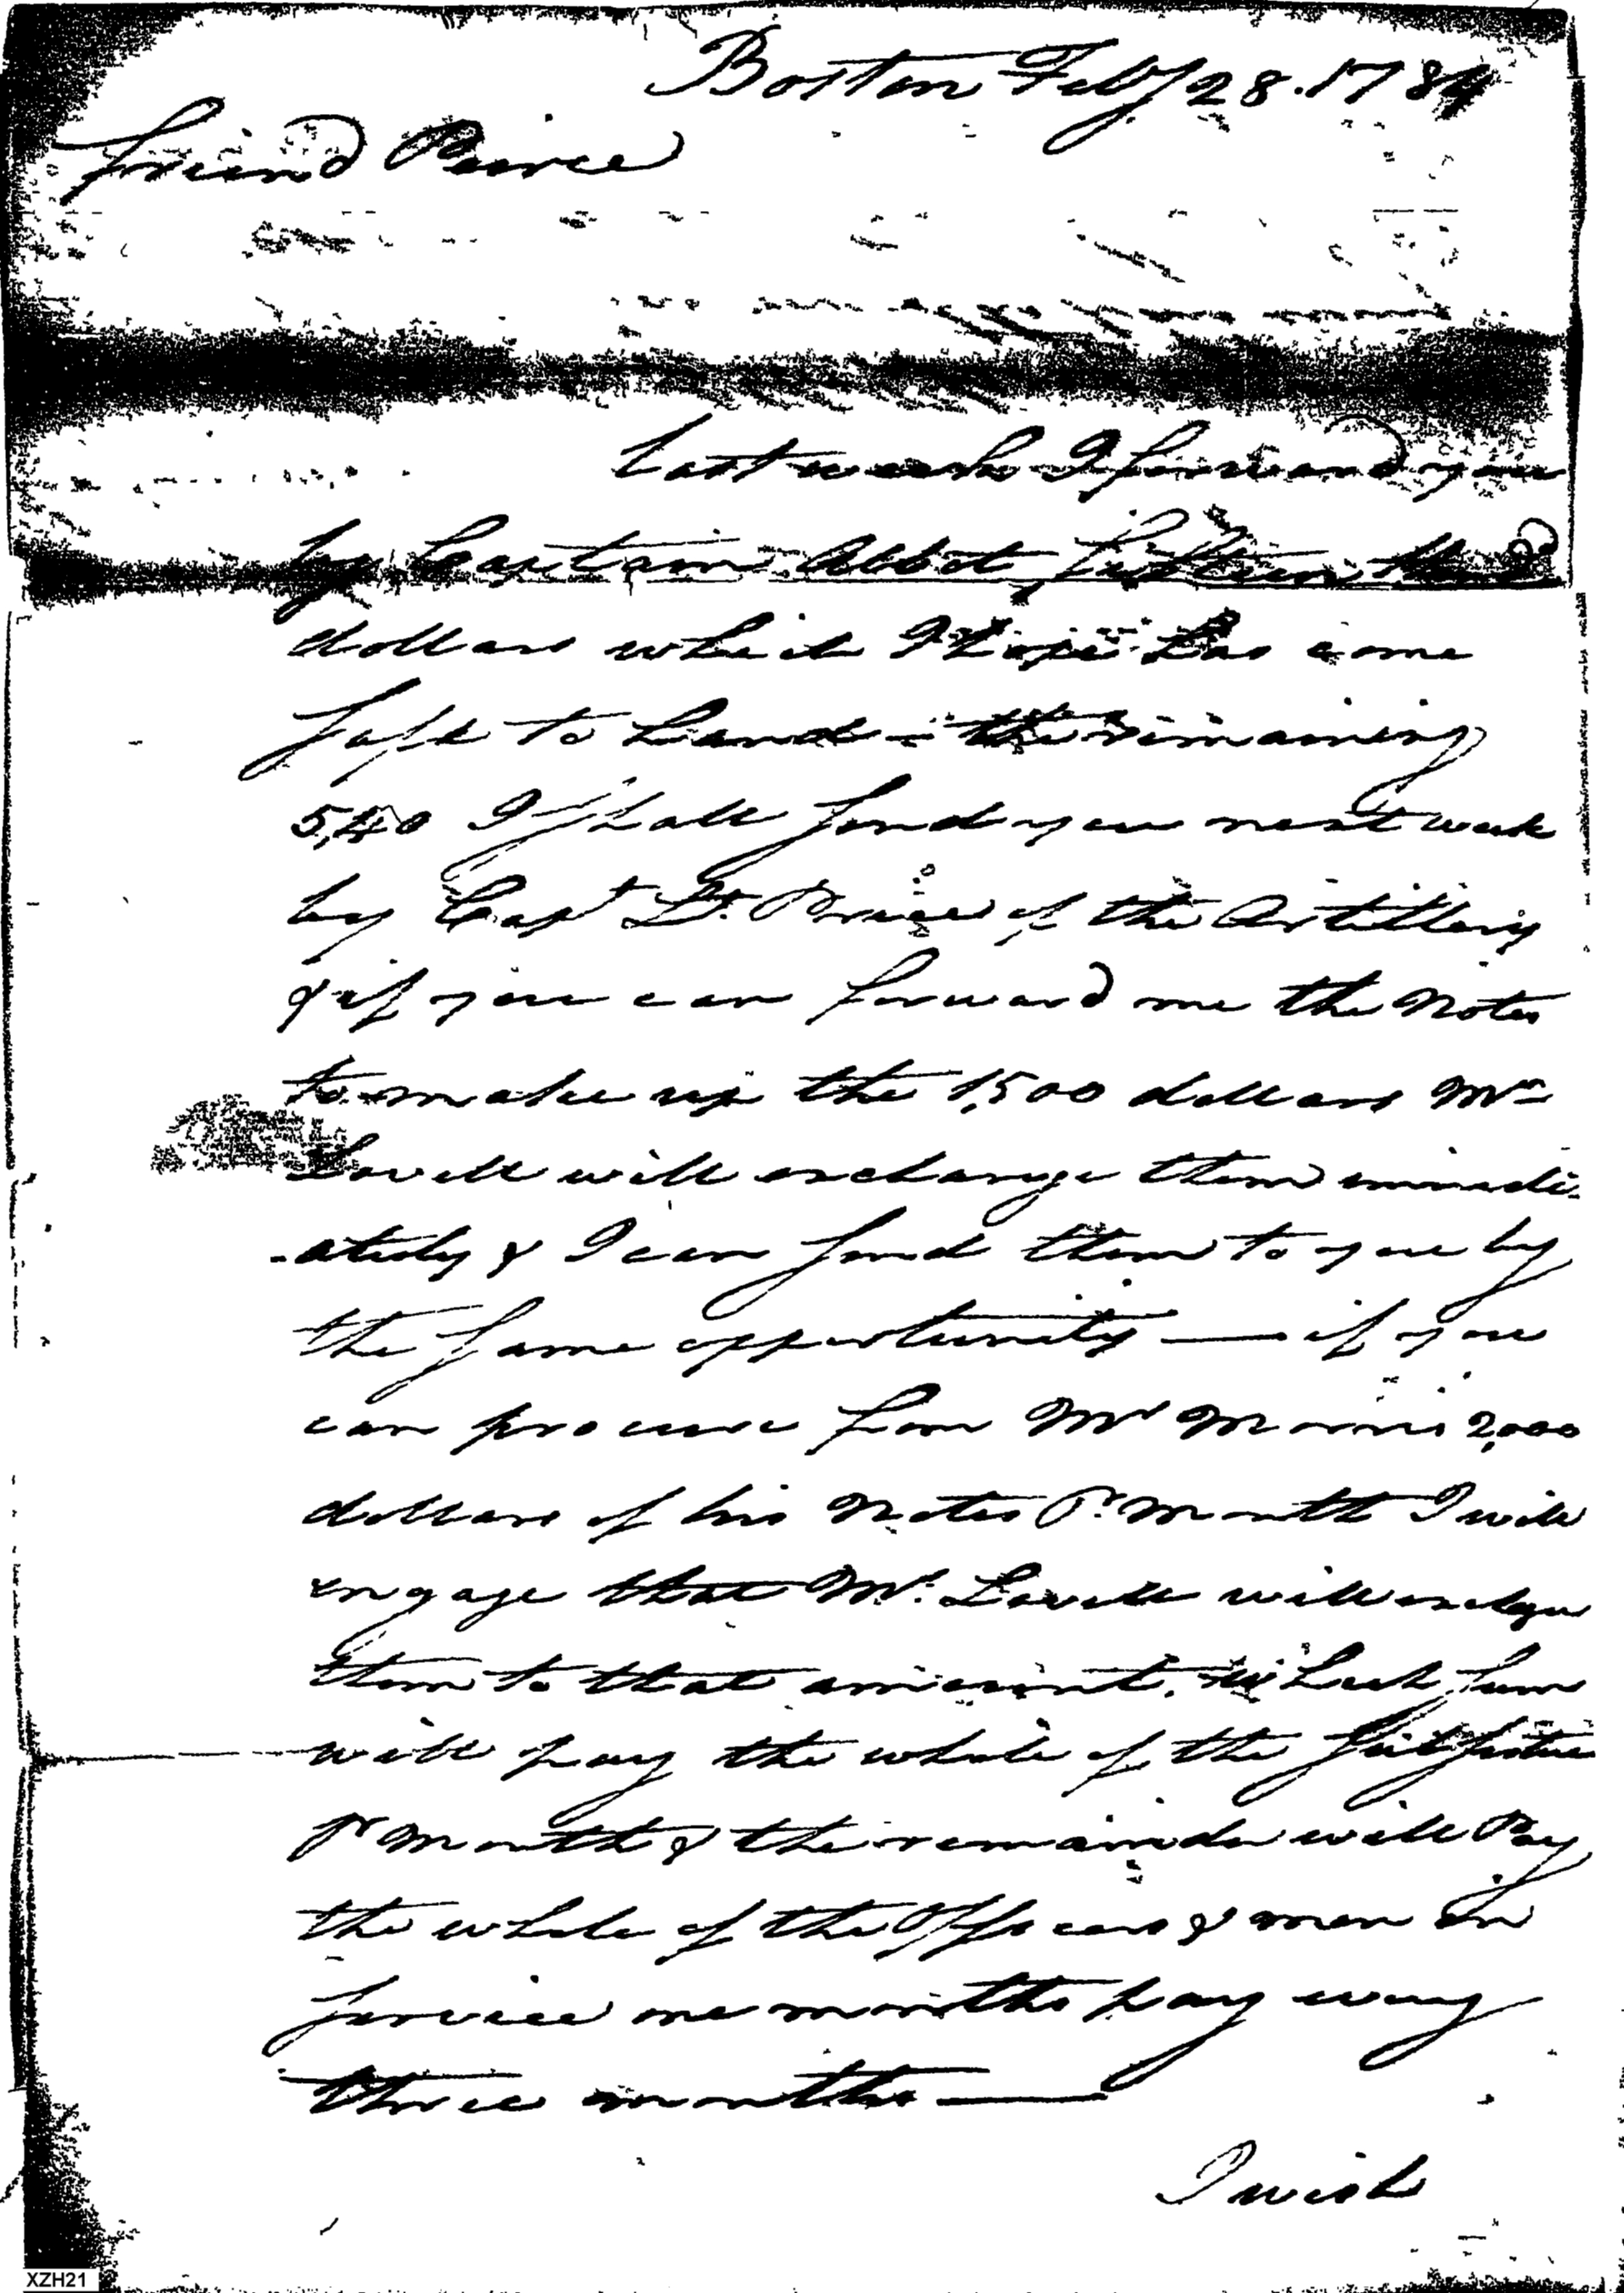 Boston Feby 28. 1784
friend Peirce
last week I forward you
by Captain Abbot fifteen
dollars which I hope has come
safe to hand - the remaining
I shall send you next week
by Capt Lt. Price of the Artillery
& if you can forward me the Notes
to make up the 1,500 dollars Mr
Lovell will exchange them immedi-
-ately & I can send them to you by
the same opportunity — if you
can procure from Mr Morris 2,000
dollars of his Notes Pr Month I will
engage that Mr. Lovell will
them to that amount. which sum
will pay the whole of the
Pr Month & the remainder will Pay
the whole of the Officers & men in
service one months pay every
three months —
I wish
XZH21